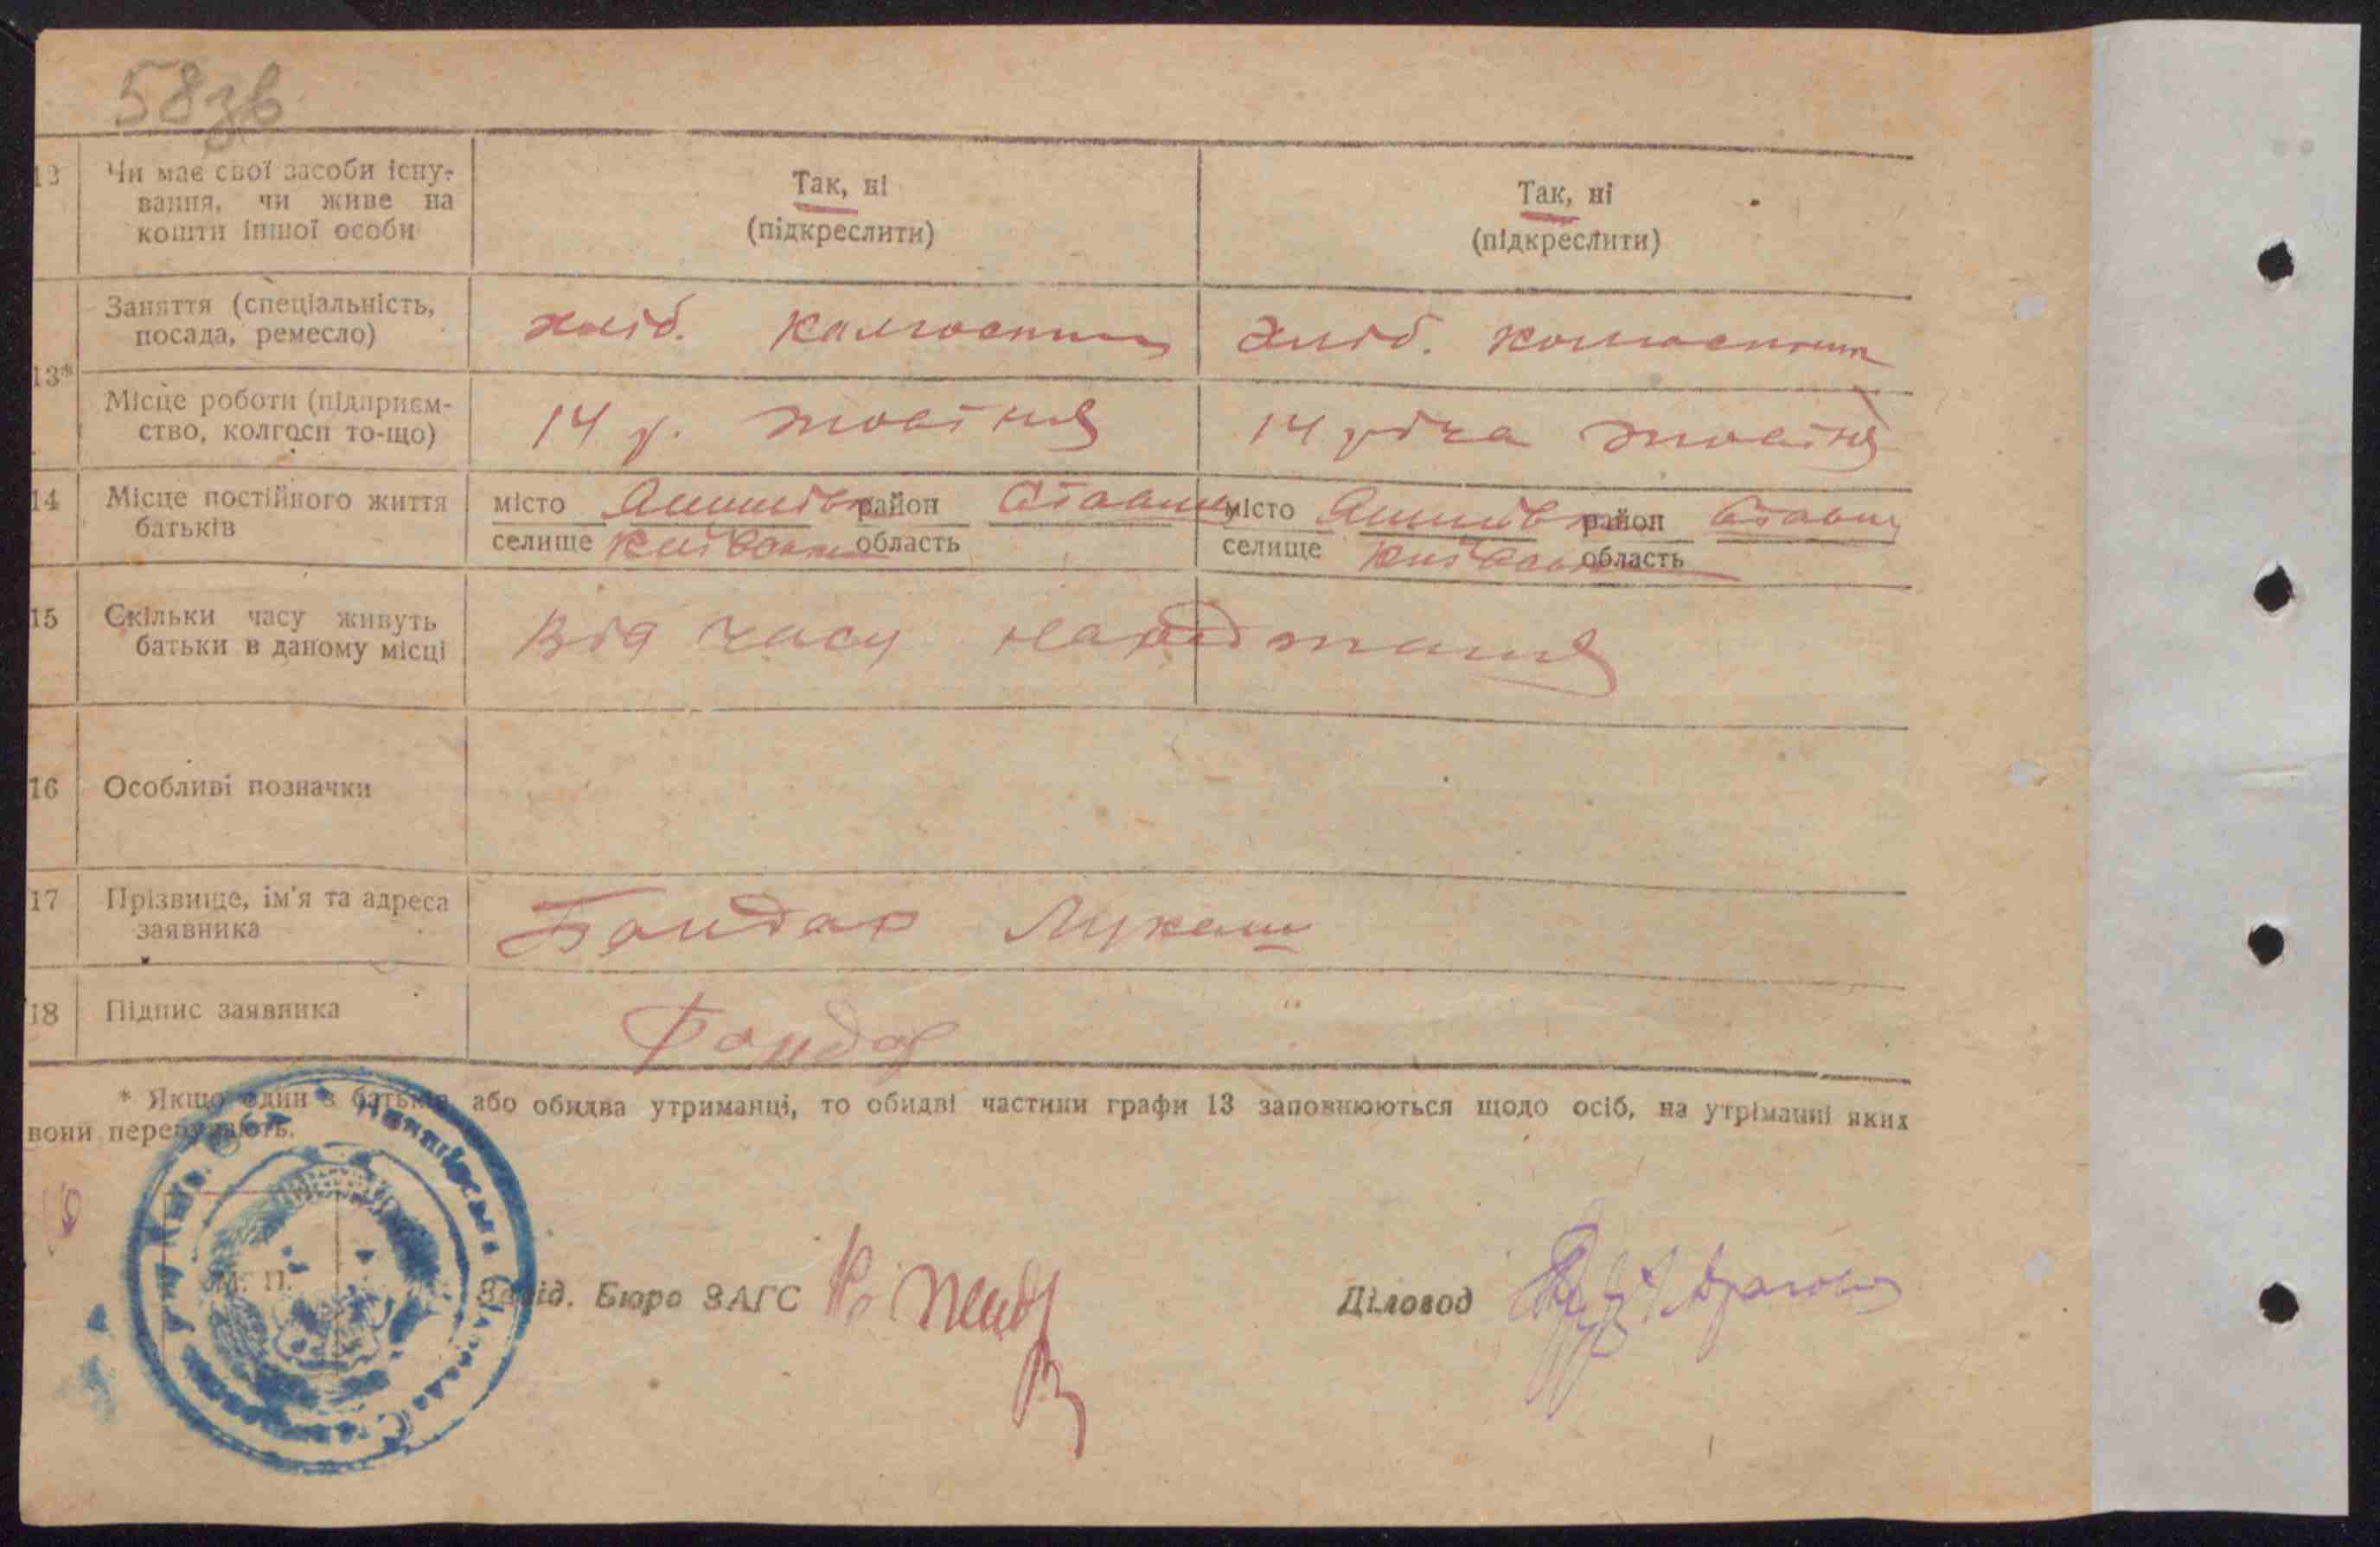 58зв
12 Чи має свої засоби існу-
вання, чи живе на
кошти іншої особи
Так, ні
(підкреслити)
Так, ні
(підкреслити)
13*
Заняття (спеціальність,
посада, ремесло)
хліб. колгоспник
хліб. колгоспниця
Місце роботи (підприєм-
ство, колгосп то-що)
14 р. жовтня
14 річя жовтня
14 Місце постійного життя
батьків
місто район Ставищ
селище Київська область
місто район Ставищ
селище Київська область
15 Скільки часу живуть
батьки в даному місці
Від часу народження
16 Особливі позначки
17 Прізвище, ім'я та адреса
заявника
Бондар Лукаш
18 Підпис заявника
Бондар
* Якщо один з батьків або обидва утриманці, то обидві частини графи 13 заповнюються щодо осіб, на утріманні яких
вони перебувають.
М. П.
Завід. Бюро ЗАГС
Діловод